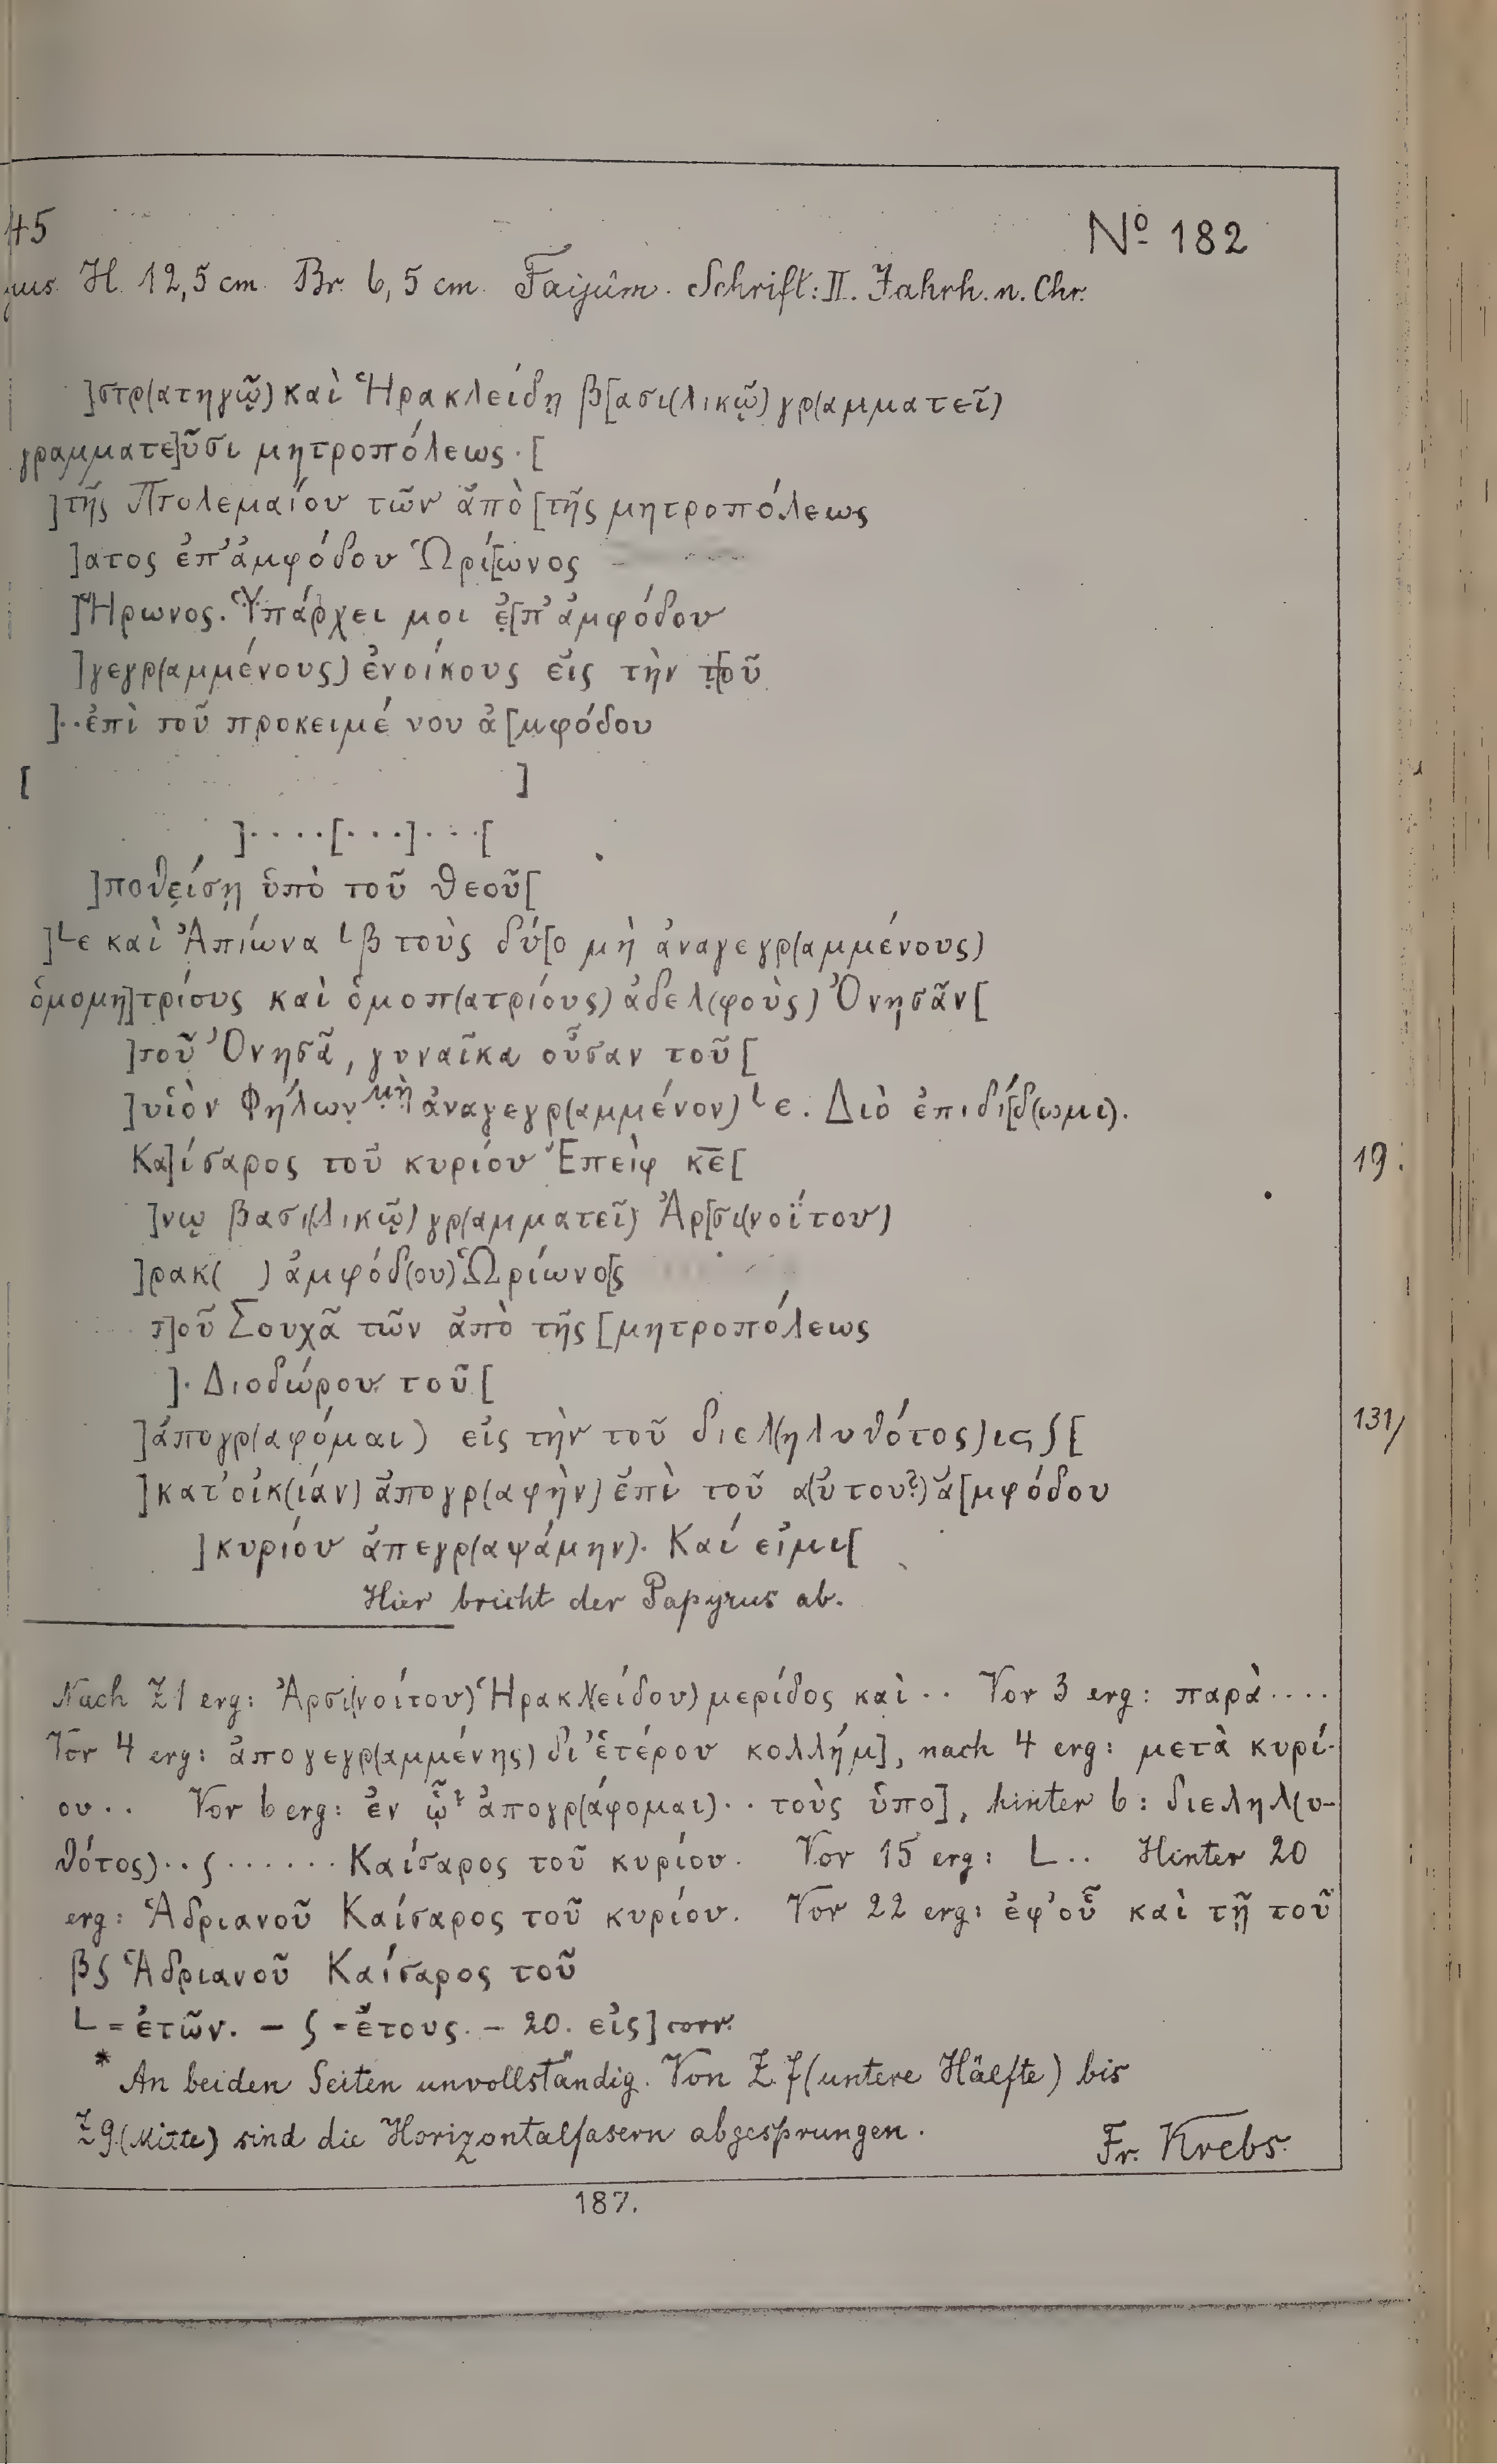 45
Nº 182
H. 12,5 cm. Br. 6,5 cm. Faijûm. Schrift: II. Jahrh. n. Chr.
]στρ(ατηγῷ) καὶ Ἡρακλείδῃ β[ασι(λικῷ) γρ(αμματεῖ)
γραμματε]ῦσι μητροπόλεως. [
]τῆς Πτολεμαίου τῶν ἀπὸ [τῆς μητροπόλεως
]ατος ἐπ' ἀμφόδου Ὡρί[ωνος
]Ἥρωνος. Ὑπάρχει μοι ἐ[π' ἀμφόδου
]γεγρ(αμμένους) ἐνοίκους εἰς τὴν τ[οῦ
]..ἐπὶ τοῦ προκειμένου ἀ[μφόδου
[ ]
]....[...]...[
]ποθείσῃ ὑπὸ τοῦ θεοῦ[
]└ε καὶ Ἀπίωνα └β τοὺς δύ[ο μὴ ἀναγεγρ(αμμένους)
ὁμομη]τρίους καὶ ὁμοπ(ατρίους) ἀδελ(φοὺς) Ὀνησᾶν[
]τοῦ Ὀνησᾶ, γυναῖκα οὖσαν τοῦ[
]υἱὸν Φήλων μὴ ἀναγεγρ(αμμένον) └ε. Διὸ ἐπιδί[δ(ωμι).
Κα]ίσαρος τοῦ κυρίου Ἐπεὶφ κε̅[
19.
]νῳ βασι(λικῷ) γρ(αμματεῖ) Ἀρ[σι(νοΐτου)
]ρακ( ) ἀμφόδ(ου) Ὡρίωνο[ς
τ]οῦ Σουχᾶ τῶν ἀπὸ τῆς [μητροπόλεως
]. Διοδώρου τοῦ[
]ἀπογρ(αφόμαι) εἰς τὴν τοῦ διελ(ηλυθότος) ις ʃ [
131/
]κατ' οἰκ(ίαν) ἀπογρ(αφὴν) ἐπὶ τοῦ α(ὐτου?) ἀ[μφόδου
]κυρίου ἀπεγρ(αψάμην). Καί εἰμι[
Hier bricht der Papyrus ab.
Nach Z 1 erg: Ἀρσι(νοίτου) Ἡρακλ(είδου) μερίδος καὶ.. Vor 3 erg: παρὰ....
Vor 4 erg: ἀπογεγρ(αμμένης) δι' ἑτέρου κολλήμ], nach 4 erg: μετὰ κυρί-
ου.. Vor 6 erg: ἐν ᾧ? ἀπογρ(άφομαι).. τοὺς ὑπο], hinter 6: διεληλ(υ-
θότος)..ʃ...... Καίσαρος τοῦ κυρίου. Vor 15 erg: L.. Hinter 20
erg: Ἁδριανοῦ Καίσαρος τοῦ κυρίου. Vor 22 erg: ἐφ' οὗ καὶ τῇ τοῦ
βʃ Ἁδριανοῦ Καίσαρος τοῦ
L = ἐτῶν. – ʃ = ἔτους. – 20. εἰς] corr.
* An beiden Seiten unvollständig. Von Z. 7 (untere Hälfte) bis
Z 9 (Mitte) sind die Horizontalfasern abgesprungen.
Fr. Krebs.
187.